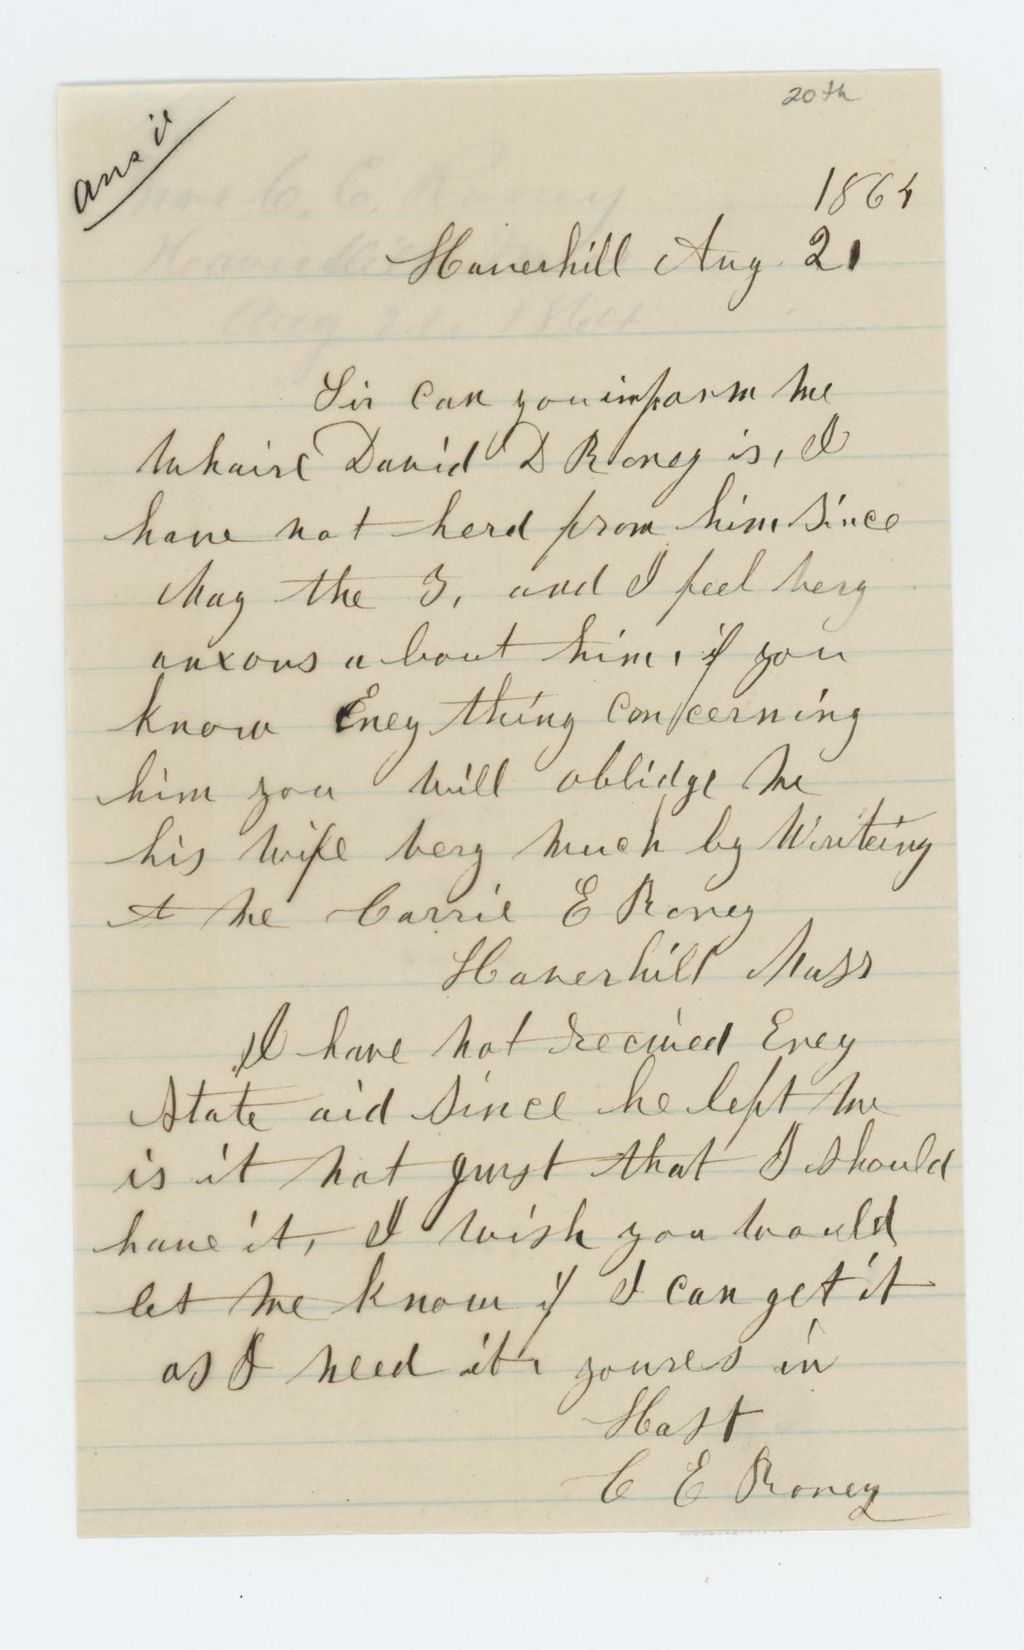 20th
ans'd
1864
Haverhill Aug. 21
Sir can you inform me
whaire David D Roney is, I
have not herd from him since
May the 3, and I feel very
anxous about him, if you
know Eney thing concerning
him you will oblidge me
his wife very much by Writeing
to me Carrie E Roney
Haverhill Mass
I have not recived Eney
State aid since he left me
is it not jurst that I should
have it, I wish you would
let me know if I can get it
as I need it, youres in
Hast
C E Roney